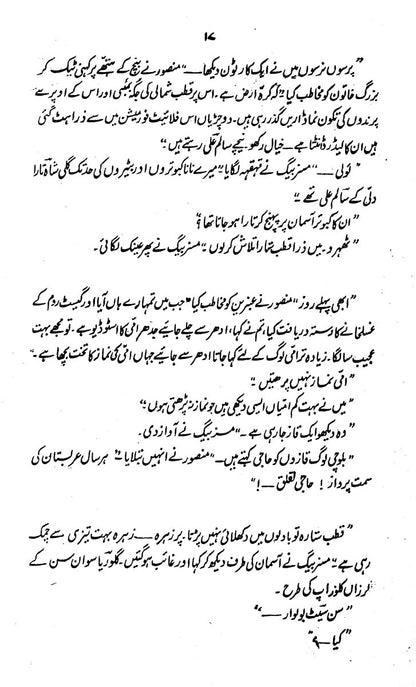 ۱۷
"پرسوں نرسوں میں نے ایک کارٹون دیکھا—" منصور نے بنچ کے ہتھے پر کہنی ٹیک کر
بزرگ خاتون کو مخاطب کیا "کہ کرّہ ارض ہے۔ اس پر قطب شمالی کی جگہ بمبئی اور اس کے اوپر سے
پرندوں کی تکون نما ڈاریں گذر رہی ہیں۔ دو چڑیاں اس فلائیٹ فورمیشن میں سے ذرا ہٹ گئی
ہیں ان کا لیڈر ڈانٹتا ہے— خیال رکھو۔ نیچے سالم علی رہتے ہیں"
"لولی—" مسز بیگ نے قہقہہ لگایا "میرے نانا کبوتروں اور بٹیروں کی حد تک گلی شاہ تارا
دلّی کے سالم علی تھے۔"
"ان کا کبوتر آسمان پر پہنچ کر تارا ہو جاتا تھا؟"
"ٹھہرو۔ میں ذرا قطب تارا تلاش کر لوں۔" مسز بیگ نے پھر عینک لگائی۔
"ابھی پہلے روز" منصور نے عنبرین کو مخاطب کیا "جب میں تمہارے ہاں آیا اور گیسٹ روم کے
غسلخانے کا رستہ دریافت کیا، تم نے کہا، ادھر سے چلے جائیے جدھر امّی کا اسٹوڈیو ہے۔ تو مجھے بہت
عجیب سا لگا۔ زیادہ تر امّی لوگ کے لئے کہا جاتا ادھر سے جائیے جہاں امّی کی نماز کا تخت بچھا ہے—
"امّی نماز نہیں پڑھتیں"
"میں نے بہت کم امّیاں ایسی دیکھی ہیں جو نماز نہ پڑھتی ہوں"
"وہ دیکھو ایک قاز جا رہی ہے۔" مسز بیگ نے آواز دی۔
"بلوچی لوگ قازوں کو حاجی کہتے ہیں—" منصور نے انہیں بتلایا "ہر سال عربستان کی
سمت پرواز! حاجی لقلق—!"
"قطب ستارہ تو بادلوں میں دکھلائی نہیں پڑتا۔ پر زہرہ — زہرہ بہت تیزی سے چمک
رہی ہے" مسز بیگ نے آسمان کی طرف دیکھ کر کہا اور غائب ہو گئیں۔ گلوریا سوان سن کے
لرزاں کلوز اپ کی طرح۔
"سن سیٹ بولوار—"
"کیا—؟"